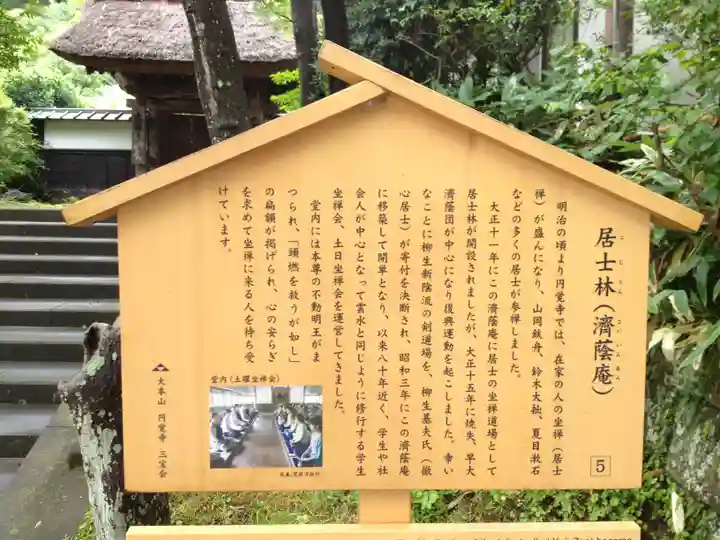 居士林(済蔭庵)
こじりん　さいいんあん
5
明治の頃より円覚寺では、在家の人の坐禅(居士
禅)が盛んになり、山岡鉄舟、鈴木大拙、夏目漱石
などの多くの居士が参禅しました。
大正十一年にこの済蔭庵に居士の坐禅道場として
居士林が開設されましたが、大正十五年に焼失、早大
済蔭団が中心になり復興運動を起こしました。幸い
なことに柳生新陰流の剣道場を、柳生基夫氏(徹
心居士)が寄付を決断され、昭和三年にこの済蔭庵
に移築して開単となり、以来八十年近く、学生や社
会人が中心となって雲水と同じように修行する学生
坐禅会、土日坐禅会を運営してきました。
堂内には本尊の不動明王がま
つられ、「頭燃を救うが如し」
の扁額が掲げられ、心の安らぎ
を求めて坐禅に来る人を待ち受
けています。
堂内(土曜坐禅会)
大本山　円覚寺　三宝会